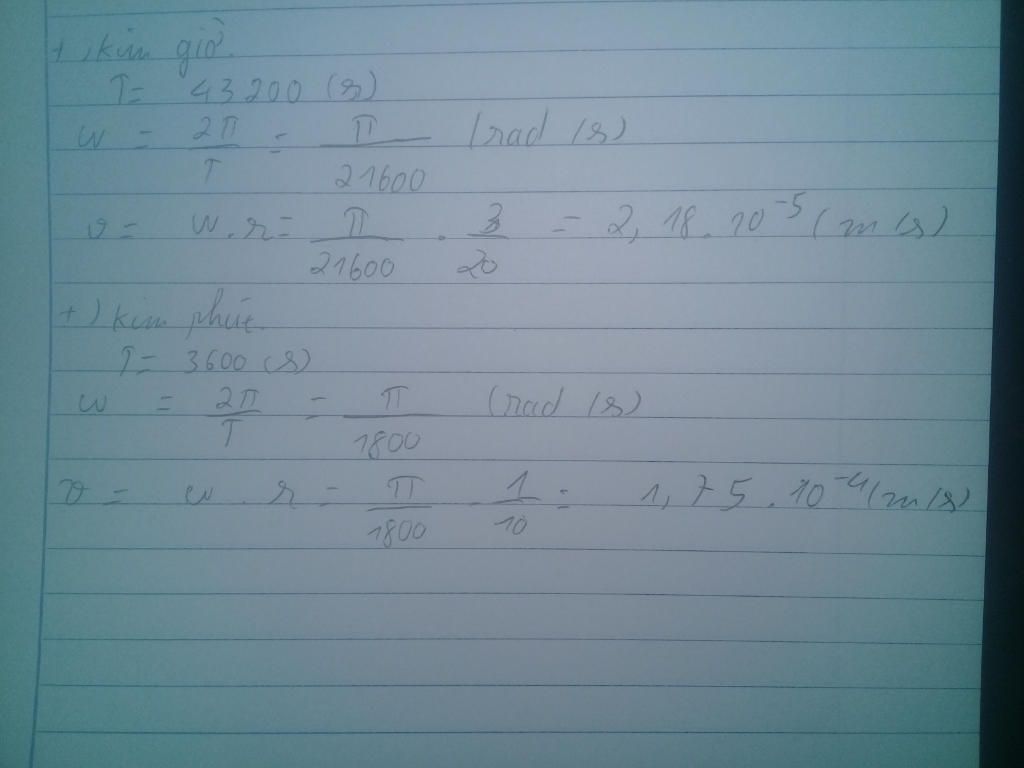 +, kim giờ.
T= 43200 (s)
ω = 2π/T = π/21600 (rad/s)
v = ω.r = π/21600 . 3/20 = 2,18.10⁻⁵ (m/s)
+) kim phút.
T= 3600 (s)
ω = 2π/T = π/1800 (rad/s)
v = ω . r = π/1800 . 1/10 = 1,75.10⁻⁴ (m/s)